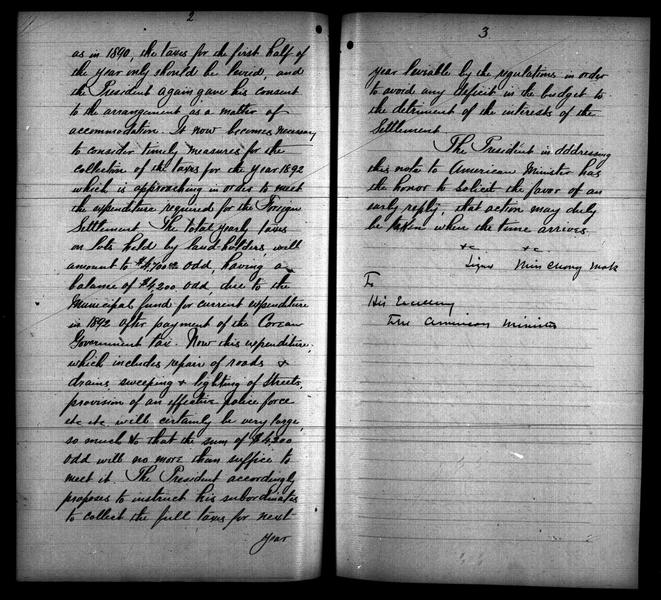 2
as in 1890, the taxes for the first half of
the year only should be levied, and
the President again gave his consent
to the arrangement as a matter of
accommodation. It now becomes necessary
to consider timely measures for the
collection of the taxes for the year 1892
which is approaching in order to meet
the expenditure required for the Foreign
Settlement. The total yearly taxes
on lots held by land-holders, will
amount to $4,700.00 odd, having a
balance of $4,200 odd due to the
Municipal fund for current expenditure
in 1892 after payment of the Corean
Government tax. Now this expenditure,
which includes repair of roads &
drains, sweeping & lighting of streets,
provision of an effective police force
etc etc will certainly be very large,
so much so that the sum of $4,200
odd will no more than suffice to
meet it. The President accordingly
proposes to instruct his subordinates
to collect the full taxes for next
year
3
year leviable by the regulations in order
to avoid any deficit in the budget to
the detriment of the interests of the
Settlement
The President in addressing
this note to American Minister has
the honor to solicit the favor of an
early reply, that action may duly
be taken when the time arrives
&c &c
Signed Min Chong Mok
To
His Excellency
The American Minister